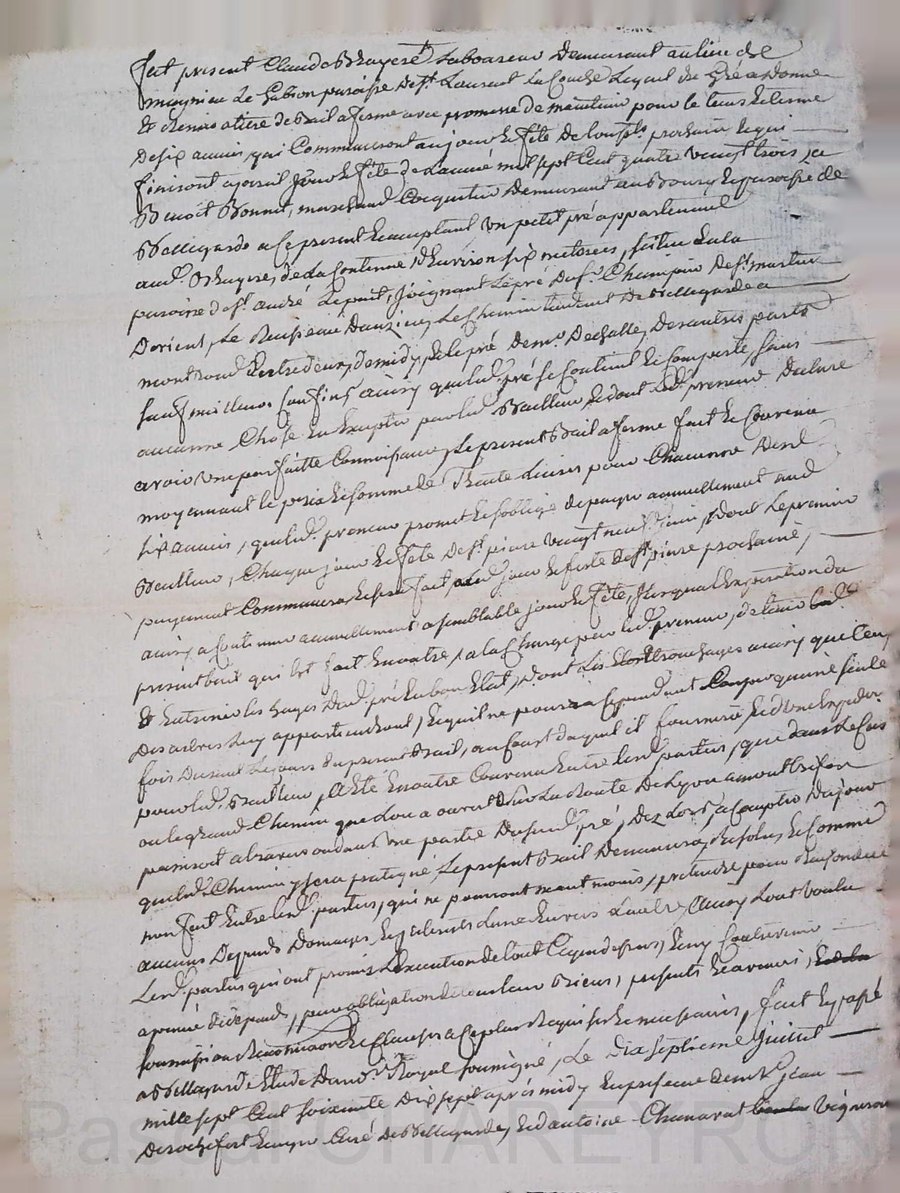 fut present Claude Brayere Laboureur Demeurant au lieu de
magnieu Le Gabion paroisse de st. Laurent La Conche Lequel de Gré a Donné
Et Remis a titre de Bail a ferme avec promesse de maintenir pour le tems Et terme
De six années, qui Commenceront au jour Et fête de prochain Et qui
finiront a pareil jour Et fête de L'année mil sept Cent quatre vingt trois, a
Benoit Bonnet, marchand Demeurant au Bourg Et paroisse de
Bellegarde a Ce present Et acceptant un petit pré appartenant
aud. Brayere, de la Contenue d'Environ six situé En la
paroisse de st. andré Le puit, joignant Le pré de sr. Champin De st. martin
D'orient, Le Ruisseau Le Chemin tendant De Bellegarde a
montrond Entre deux, de midy, Et le pré De mr. Des autres parts
sauf meilleurs Confins, ainsy que led. pré se Contient Et Comporte, sans
aucune Chose En Excepter par led. Bailleur, Et dont led. preneur Declare
avoir une parfaitte Connoissance, Le present Bail a ferme fait Et Convenu
moyennant le prix Et somme de Trente Livres pour Chacune Desd.
six années, que led. preneur promet Et s'oblige de payer annuellement aud.
Bailleur, Chaque jour Et fête De st. pierre vingt neuf juin, Dont Le premier
payement Commencera Et sera fait jour Et feste De st. pierre prochaine,
ainsy a Continuer annuellement a semblable jour Et fête, jusqu'a L'Expiration du
present bail qui Est fait En outre, a la Charge par led. preneur, de tenir
Et Entretenir les hayes Dud. pré En bon Etat, Dont Les ainsy que Ceux
Des arbres Luy appartiendront, Lesquels ne pourra Cependant Couper qu'une seule
fois Durant Le Cours Du present Bail,
pour led. Bailleur, a Eté En outre Convenu Entre Lesd. parties, que dans Le Cas
ou Le grand Chemin que L'on a ouvert sur La Route De Lyon a montbrison
passeroit a travers ou dans une partie Dusud. pré, Dez Lors, a Compter Du jour
que led. Chemin y sera pratiqué, Le present Bail Demeurera Resolu, Et Comme
non fait Entre Lesd. parties, qui ne pourront neantmoins, pretendre pour Raison de ce
aucuns Depends Domages Et interests L'une Envers L'autre, ainsy L'ont voulu
Lesd. parties qui ont promis L'Execution de tout Ce que dessus, sans y Contrevenir
a peine de depends, par obligation de tous leurs Biens, presents Et avenir,
soumissions Renonciations Et Clauses a Ce plus Requises Et necessaires, fait Et passé
a Bellegarde Etude Dud. Nre. Royal soussigné, Le Dix septieme juillet
mille sept Cent soixante Dix sept après midy En presence de mre. jean
De Rochefort Curé De Bellegarde, Et d'antoine Chanavat vigneron
Pascal CHAREYRON